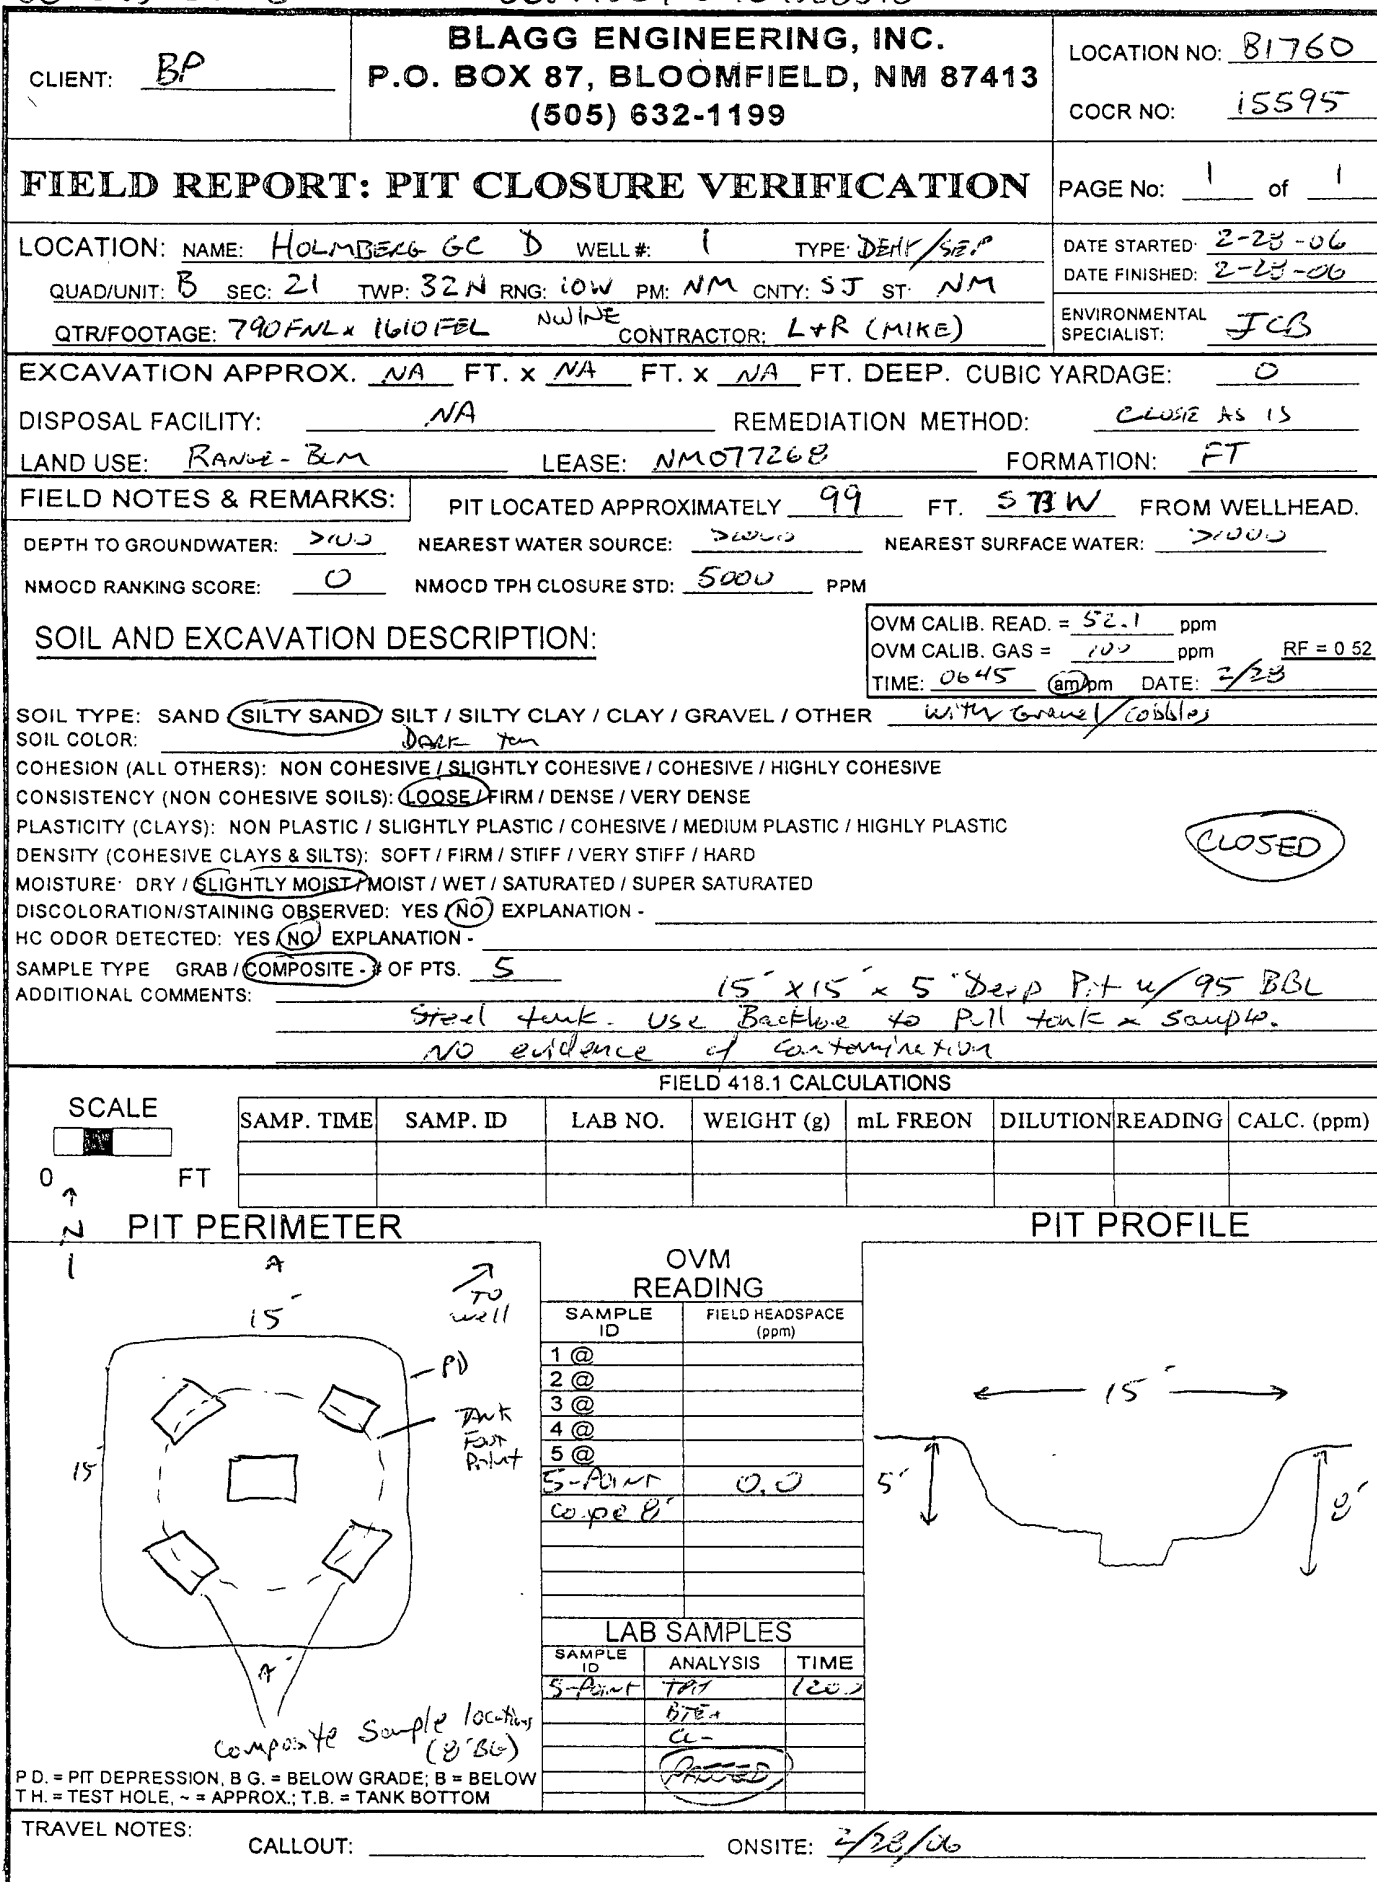 BLAGG ENGINEERING, INC.
P.O. BOX 87, BLOOMFIELD, NM 87413
(505) 632-1199
CLIENT: BP
LOCATION NO: 81760
COCR NO: 15595
FIELD REPORT: PIT CLOSURE VERIFICATION
PAGE No: 1 of 1
LOCATION: NAME: HOLMBERG GC D WELL #: 1 TYPE: DEHY/SEP
QUAD/UNIT: B SEC: 21 TWP: 32N RNG: 10W PM: NM CNTY: SJ ST: NM
QTR/FOOTAGE: 790 FNL x 1610 FEL NW/NE CONTRACTOR: L+R (MIKE)
DATE STARTED: 2-28-06
DATE FINISHED: 2-28-06
ENVIRONMENTAL SPECIALIST: JCB
EXCAVATION APPROX. NA FT. x NA FT. x NA FT. DEEP. CUBIC YARDAGE: 0
DISPOSAL FACILITY: NA REMEDIATION METHOD: CLOSE AS IS
LAND USE: RANGE - BLM LEASE: NM077268 FORMATION: FT
FIELD NOTES & REMARKS: PIT LOCATED APPROXIMATELY 99 FT. S73W FROM WELLHEAD.
DEPTH TO GROUNDWATER: >100 NEAREST WATER SOURCE: >1000 NEAREST SURFACE WATER: >1000
NMOCD RANKING SCORE: 0 NMOCD TPH CLOSURE STD: 5000 PPM
SOIL AND EXCAVATION DESCRIPTION:
OVM CALIB. READ. = 52.1 ppm
OVM CALIB. GAS = 100 ppm RF = 0 52
TIME: 0645 am/pm DATE: 2/28
SOIL TYPE: SAND / SILTY SAND / SILT / SILTY CLAY / CLAY / GRAVEL / OTHER with Gravel/cobbles
SOIL COLOR: DARK tan
COHESION (ALL OTHERS): NON COHESIVE / SLIGHTLY COHESIVE / COHESIVE / HIGHLY COHESIVE
CONSISTENCY (NON COHESIVE SOILS): LOOSE / FIRM / DENSE / VERY DENSE
PLASTICITY (CLAYS): NON PLASTIC / SLIGHTLY PLASTIC / COHESIVE / MEDIUM PLASTIC / HIGHLY PLASTIC
DENSITY (COHESIVE CLAYS & SILTS): SOFT / FIRM / STIFF / VERY STIFF / HARD
CLOSED
MOISTURE: DRY / SLIGHTLY MOIST / MOIST / WET / SATURATED / SUPER SATURATED
DISCOLORATION/STAINING OBSERVED: YES / NO EXPLANATION -
HC ODOR DETECTED: YES / NO EXPLANATION -
SAMPLE TYPE GRAB / COMPOSITE - # OF PTS. 5
ADDITIONAL COMMENTS: 15' x 15' x 5' Deep Pit w/ 95 BBL
Steel tank. Use Backhoe to Pull tank & sample.
NO evidence of contamination
FIELD 418.1 CALCULATIONS
SCALE
0 FT
SAMP. TIME SAMP. ID LAB NO. WEIGHT (g) mL FREON DILUTION READING CALC. (ppm)
N
PIT PERIMETER
PIT PROFILE
A
15'
TO well
PD
TANK Foot Print
15'
A'
Composite Sample locations
(8' BG)
OVM READING
SAMPLE ID FIELD HEADSPACE (ppm)
1 @
2 @
3 @
4 @
5 @
5-Point 0.0
Comp @ 8'
LAB SAMPLES
SAMPLE ID ANALYSIS TIME
5-Point TPH 1200
BTEX
Cl-
PASSED
15'
5'
8'
P D. = PIT DEPRESSION, B G. = BELOW GRADE; B = BELOW
T H. = TEST HOLE, ~ = APPROX.; T.B. = TANK BOTTOM
TRAVEL NOTES:
CALLOUT: ONSITE: 2/28/06